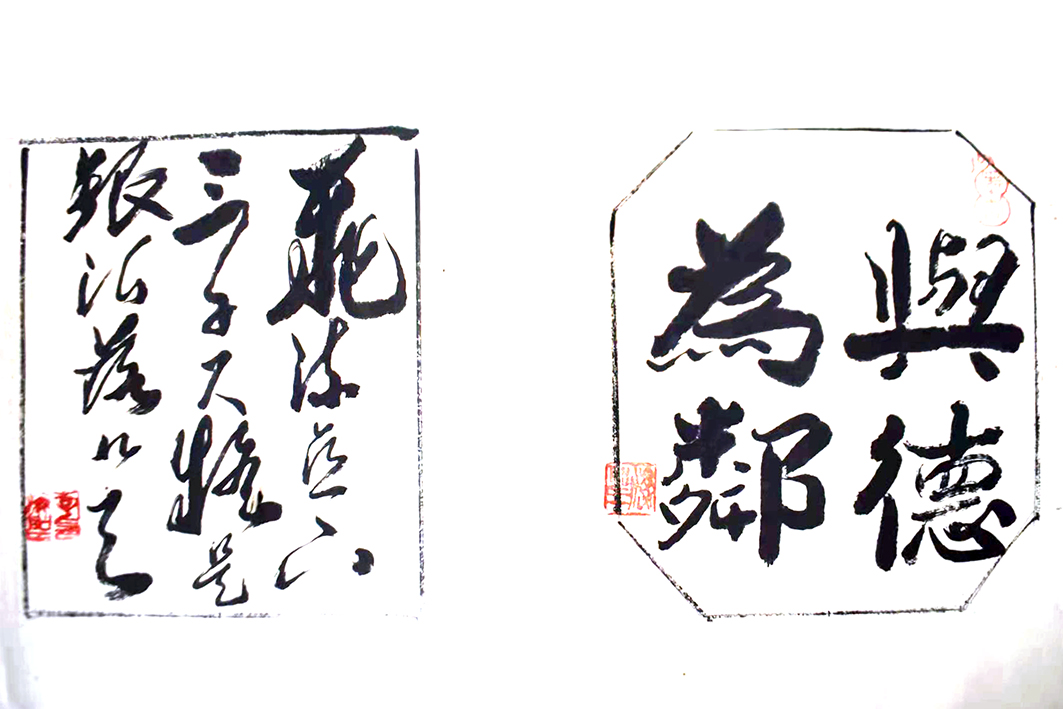 與德
為鄰
飛流直下
三千尺疑是
銀河落九天